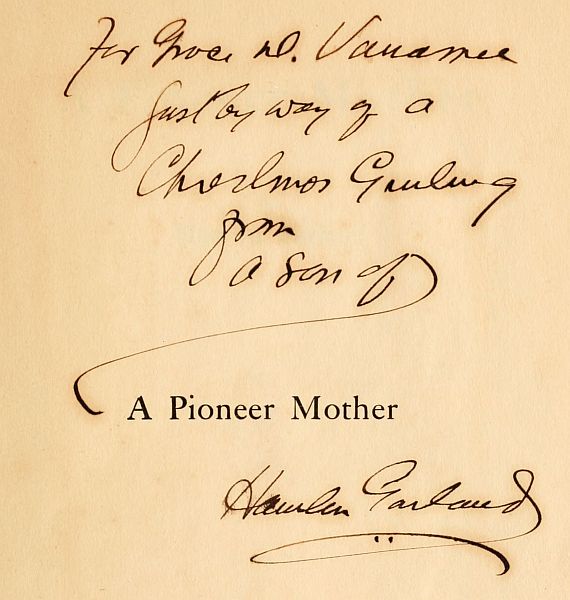 For Grace D. Vanamee
Just by way of a
Christmas Greeting
from
a son of
A Pioneer Mother
Hamlin Garland